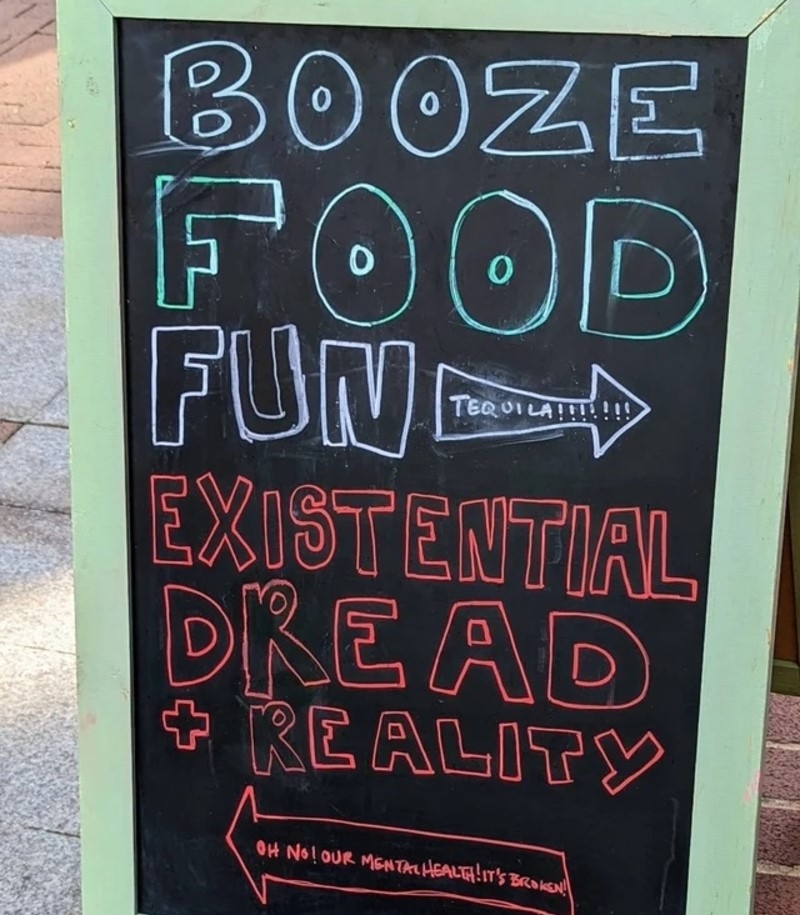 BOOZE
FOOD
FUN
TEQUILA!!!!!!!!
EXISTENTIAL
DREAD
+ REALITY
OH NO! OUR MENTAL HEALTH! IT'S BROKEN!